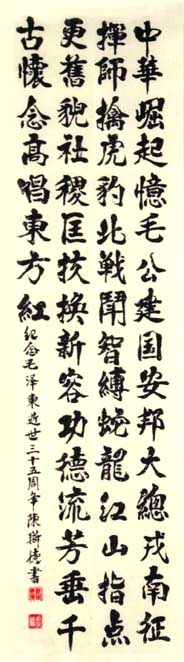 中華崛起憶毛公建国安邦大總戎南征
揮師擒虎豹北戦鬧智縛蛇龍江山指点
更舊貌社稷匡扶換新容功德流芳垂千
古懷念高唱東方紅
紀念毛泽東逝世三十五周年陳衛德書